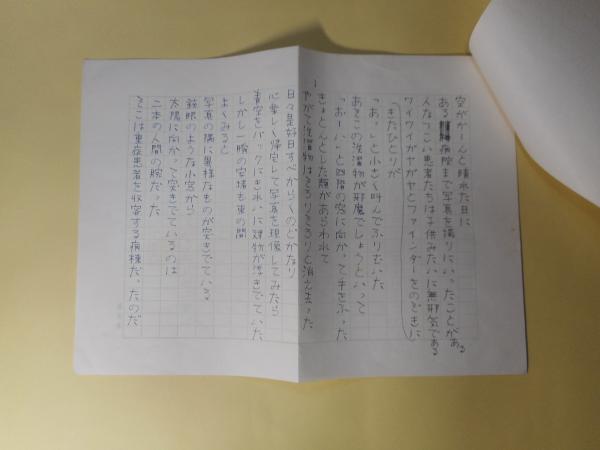 空がかーんと晴れた日に
ある病院まで写真を撮りにいったことがある
人なつこい患者たちは子供みたいに無邪気である
ワイワイガヤガヤとファインダーをのぞきに
きたひとりが
「あっ」と小さく叫んでふりむいた
あそこの洗濯物が邪魔でしょうといって
「おーい」と四階の窓に向かって手をふった
きょとんとした顔があらわれて
やがて洗濯物はするりするりと消え去った
日々是好日すべからくのどかなり
心楽しく帰宅して写真を現像してみたら
青空をバックにきれいに建物が浮きでていた
しかし一瞬の安堵も束の間
よくみると
写真の隅に異様なものが突きでている
鉄眼のような小窓から
太陽に向かって突きでているのは
二本の人間の腕だった
そこは重症患者を収容する病棟だったのだ